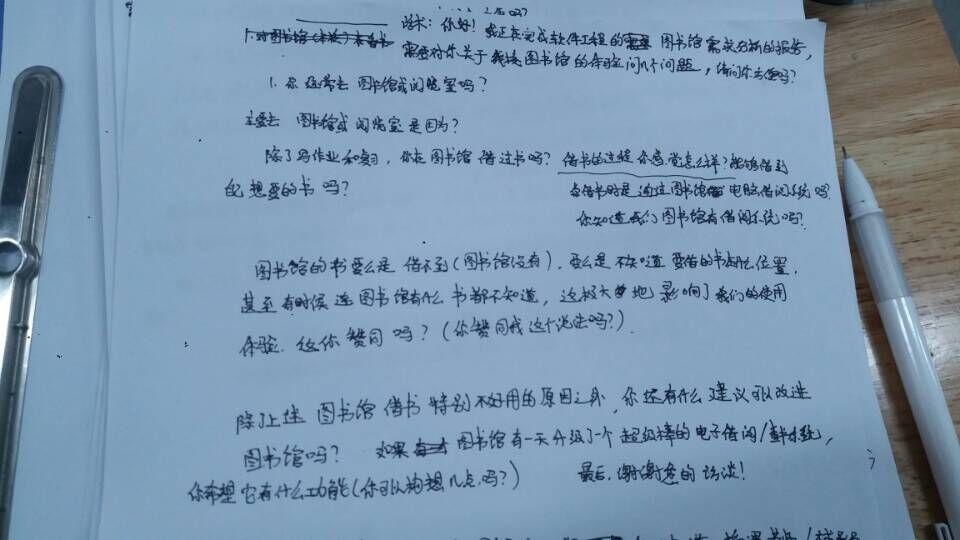 话术：你好！我正在完成软件工程的图书馆需求分析的报告，
需要对你关于我校图书馆的体验问几个问题，请问你方便吗？
1. 你经常去图书馆或阅览室吗？
主要去图书馆或阅览室是因为？
除了写作业和复习，你在图书馆借过书吗？借书的过程你感觉怎么样？能够借到
你想要的书吗？
去借书时是通过图书馆电脑借阅系统吗？
你知道我们图书馆有借阅系统吗？
图书馆的书要么是借不到（图书馆没有），要么是不知道要借的书在什么位置，
甚至有时候连图书馆有什么书都不知道，这极大地影响了我们的使用
体验，这你赞同吗？（你赞同我这个说法吗？）
除上述图书馆借书特别不好用的原因之外，你还有什么建议可以改进
图书馆吗？如果图书馆有一天升级了一个超级棒的电子借阅/系统，
你希望它有什么功能（你可以构想几点吗？） 最后，谢谢您的访谈！